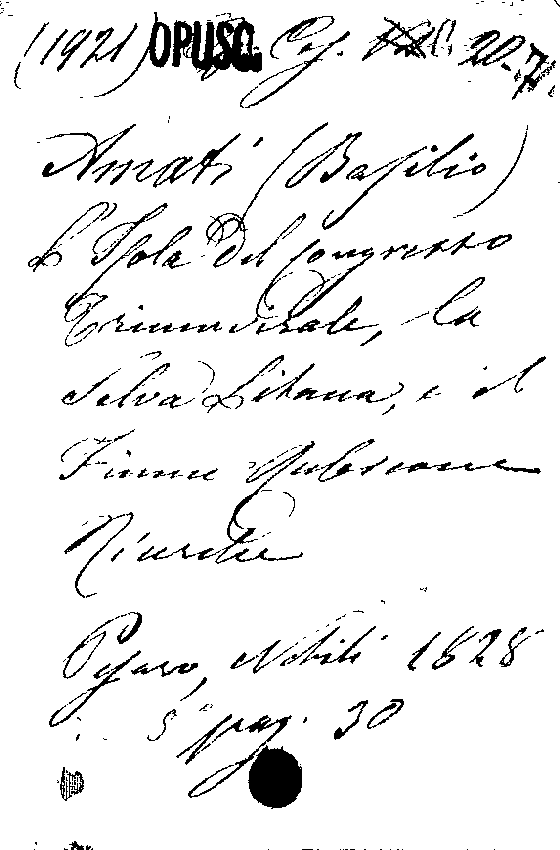 (1921) OPUSC. Cas. 20.
Amati (Basilio)
L'Isola del Congresso
Triumvirale, la
Selva Litana, e il
Fiume Rubicone
Ricerche
Pesaro, Nobili 1828
8° pag. 30